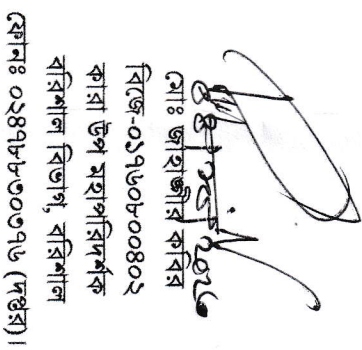 মোঃ জাহাঙ্গীর কবির
বিজে-০১৭৬০৮০০৪০১
কারা উপ মহাপরিদর্শক
বরিশাল বিভাগ, বরিশাল
ফোনঃ ০২৪৭৮৮৩০৩৭৬ (দপ্তর)।